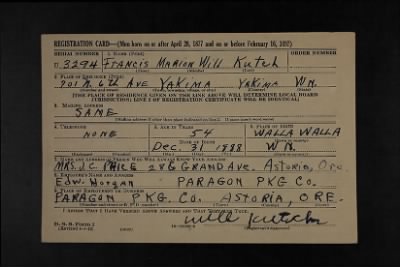 REGISTRATION CARD—(Men born on or after April 28, 1877 and on or before February 16, 1897)
SERIAL NUMBER 1. NAME (Print) ORDER NUMBER
U 3294 FRANCIS MARION WILL KUTCH
(First) (Middle) (Last)
2. PLACE OF RESIDENCE (Print)
901 N. 6th AVE YAKIMA YAKIMA WN.
(Number and street) (Town, township, village, or city) (County) (State)
[THE PLACE OF RESIDENCE GIVEN ON THE LINE ABOVE WILL DETERMINE LOCAL BOARD
JURISDICTION; LINE 2 OF REGISTRATION CERTIFICATE WILL BE IDENTICAL]
3. MAILING ADDRESS
SAME
[Mailing address if other than place indicated on line 2. If same insert word same]
4. TELEPHONE 5. AGE IN YEARS 6. PLACE OF BIRTH
NONE 54 WALLA WALLA
DATE OF BIRTH (Town or county)
DEC. 31 1888 WN.
(Exchange) (Number) (Mo.) (Day) (Yr.) (State or country)
7. NAME AND ADDRESS OF PERSON WHO WILL ALWAYS KNOW YOUR ADDRESS
MRS. J.C. 286 GRAND AVE. ASTORIA, ORE.
8. EMPLOYER'S NAME AND ADDRESS
EDW. PARAGON PKG CO.
9. PLACE OF EMPLOYMENT OR BUSINESS
PARAGON PKG. CO. ASTORIA, ORE.
(Number and street or R. F. D. number) (Town) (County) (State)
I AFFIRM THAT I HAVE VERIFIED ABOVE ANSWERS AND THAT THEY ARE TRUE.
D. S. S. Form 1
Will Kutch